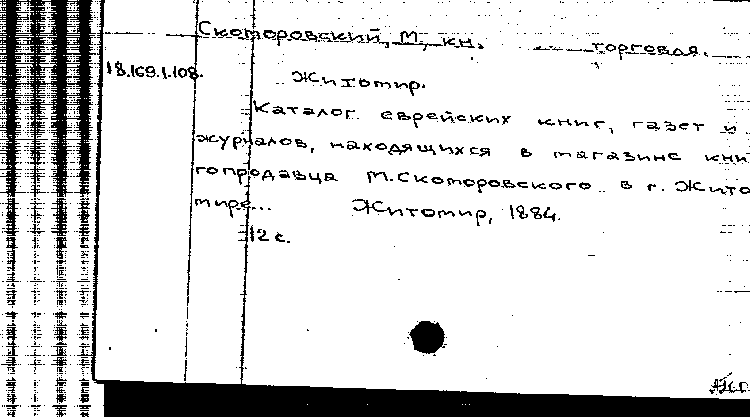 Скоморовский, М, кн. торговля.
18.169.1.108.
Житомир.
Каталог еврейских книг, газет и
журналов, находящихся в магазине кни
гопродавца М.Скоморовского в г. Жито
мире... Житомир, 1884.
12 с.